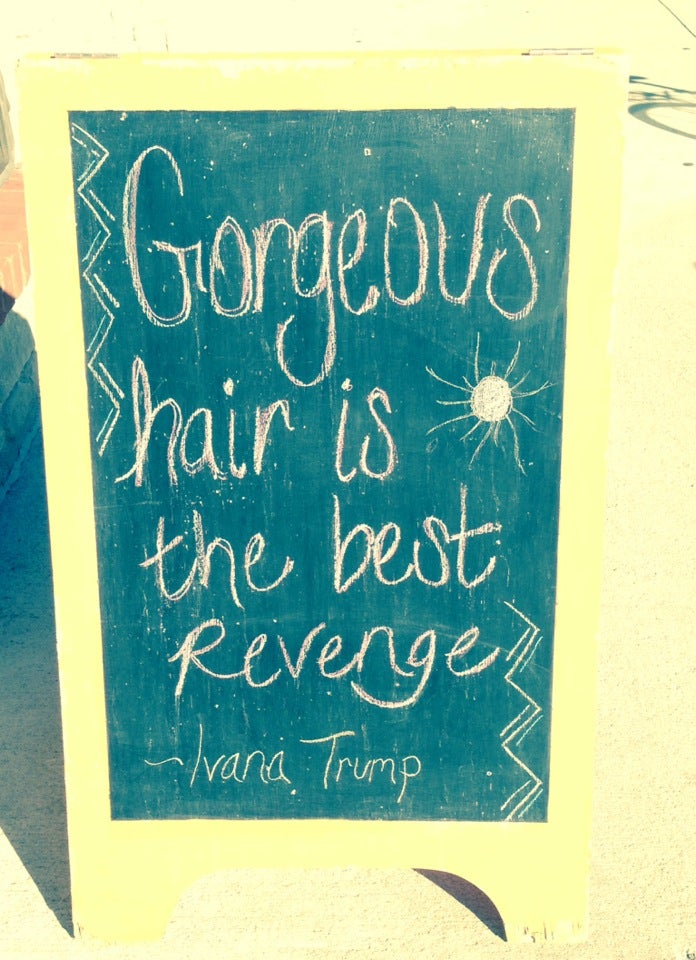 Gorgeous
hair is
the best
Revenge
~Ivana Trump